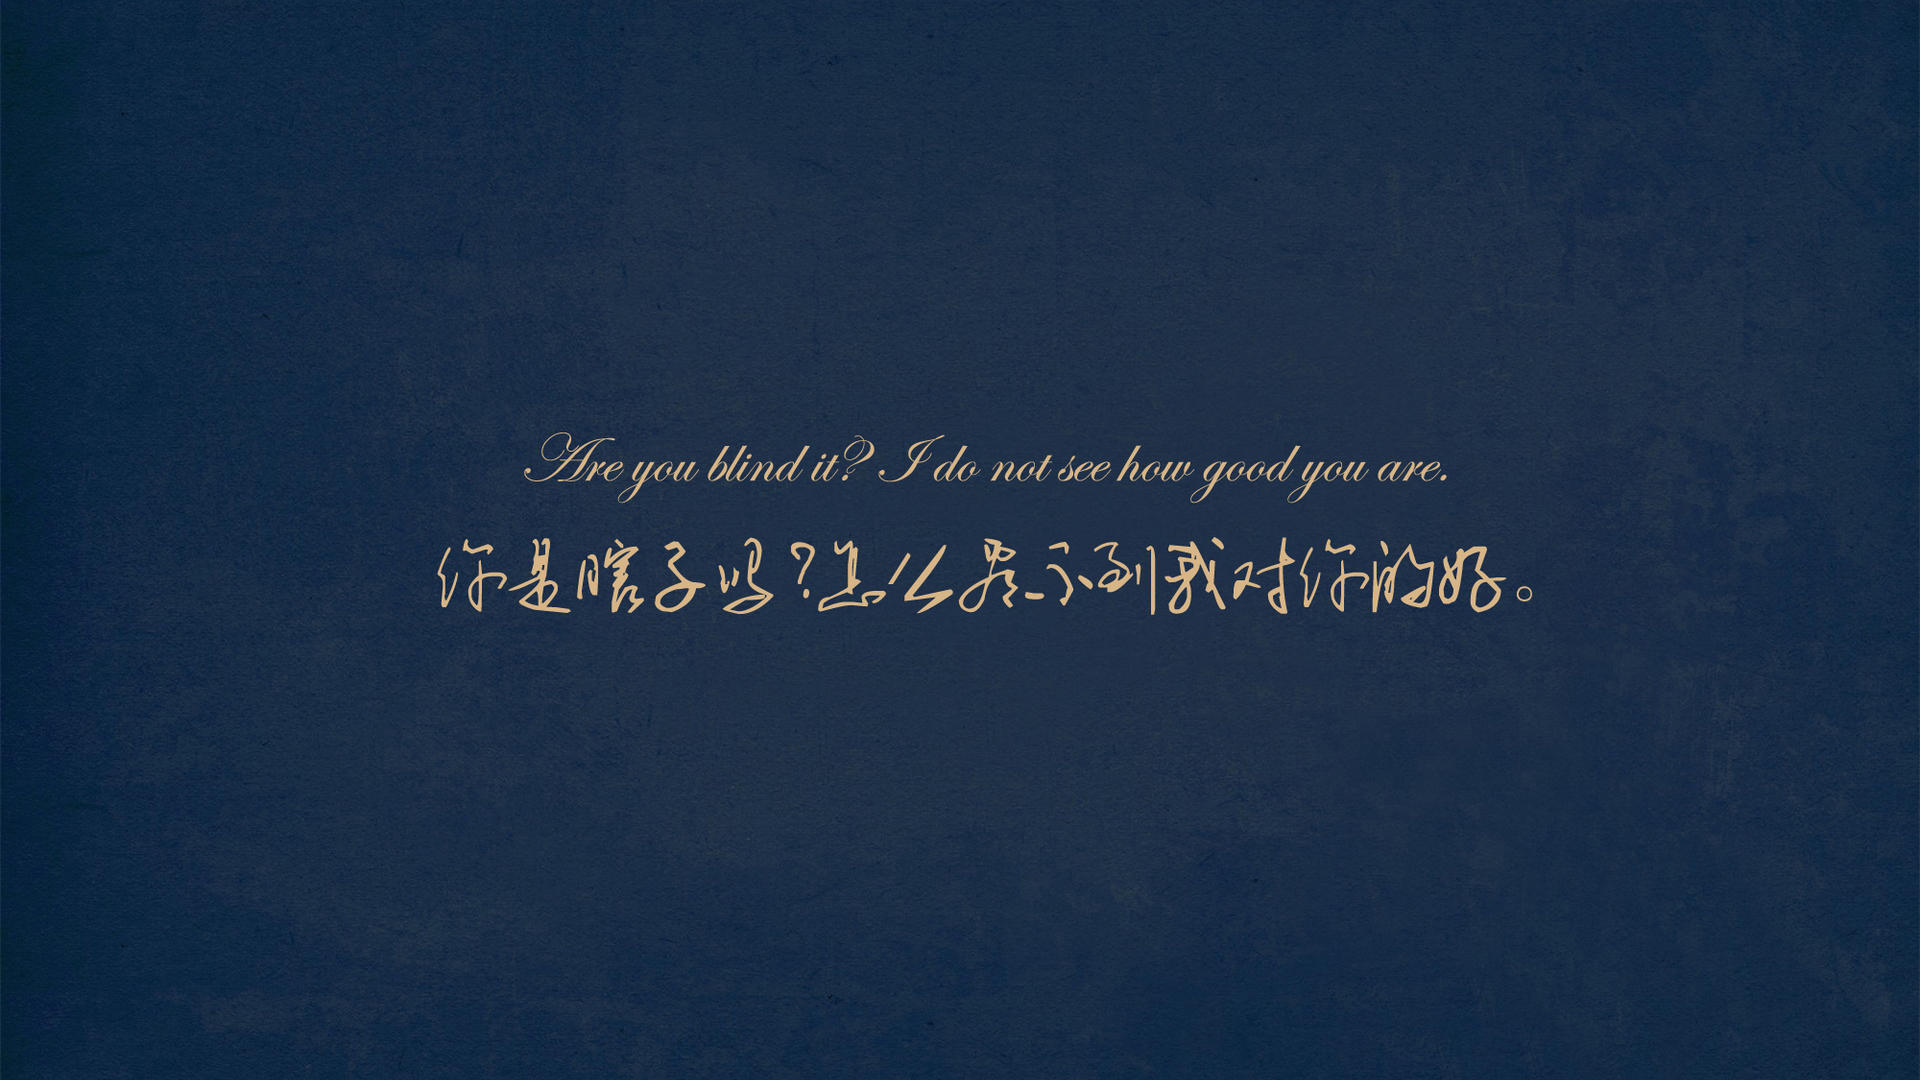 Are you blind it? I do not see how good you are.
你是瞎子吗?怎么看不到我对你的好。